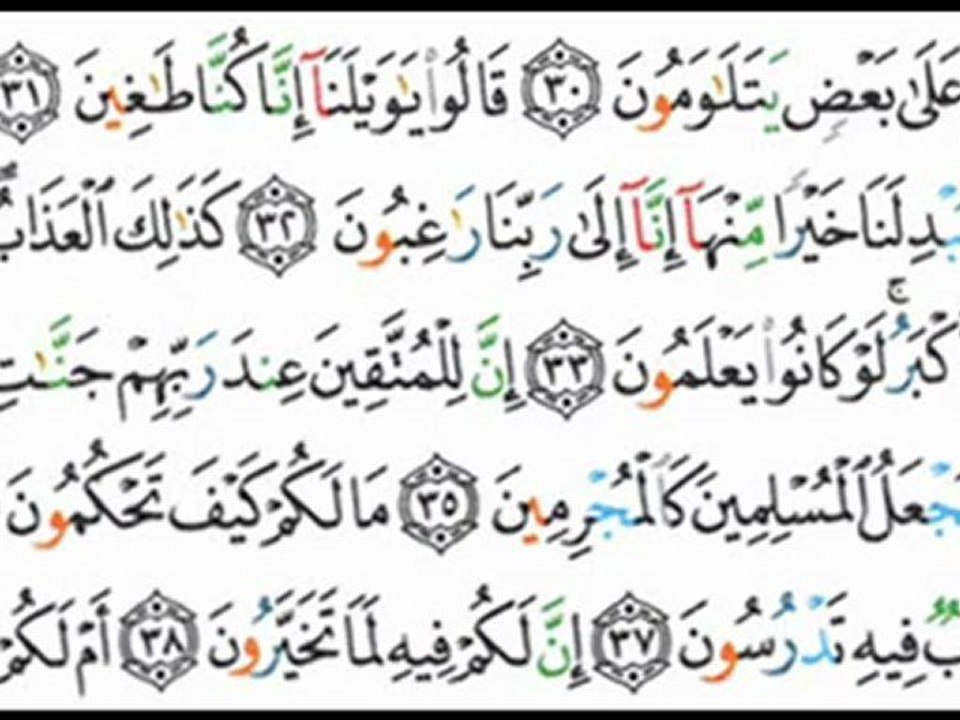 عَلَىٰ بَعْضٍ يَتَلَـٰوَمُونَ ٣٠ قَالُوا۟ يَـٰوَيْلَنَآ إِنَّا كُنَّا طَـٰغِينَ ٣١
لَنَا خَيْرًا مِّنْهَآ إِنَّآ إِلَىٰ رَبِّنَا رَٰغِبُونَ ٣٢ كَذَٰلِكَ ٱلْعَذَابُ
أَكْبَرُ ۚ لَوْ كَانُوا۟ يَعْلَمُونَ ٣٣ إِنَّ لِلْمُتَّقِينَ عِندَ رَبِّهِمْ جَنَّـٰتِ
ٱلْمُسْلِمِينَ كَٱلْمُجْرِمِينَ ٣٥ مَا لَكُمْ كَيْفَ تَحْكُمُونَ
فِيهِ تَدْرُسُونَ ٣٧ إِنَّ لَكُمْ فِيهِ لَمَا تَخَيَّرُونَ ٣٨ أَمْ لَكُمْ